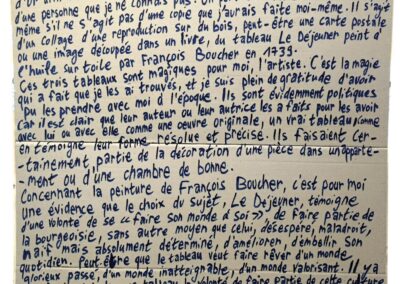 d'une personne que je ne connais pas.
même s'il ne s'agit pas d'une copie que j'aurais faite moi-même. Il s'agit
d'un collage d'une reproduction sur du bois, peut-être une carte postale
ou une image découpée dans un livre, du tableau Le Déjeuner peint à
l'huile sur toile par François Boucher en 1739.
Ces trois tableaux sont magiques pour moi, l'artiste. C'est la magie
qui a fait que je les ai trouvés, et je suis plein de gratitude d'avoir
pu les prendre avec moi à l'époque. Ils sont évidemment politiques
car il est clair que leur auteur ou leur autrice les a faits pour les avoir
avec lui ou avec elle comme une oeuvre originale, un vrai tableau comme
en témoigne leur forme résolue et précise. Ils faisaient cer-
tainement, partie de la décoration d'une pièce dans un apparte-
ment ou d'une chambre de bonne.
Concernant la peinture de François Boucher, c'est pour moi
une évidence que le choix du sujet, Le Déjeuner, témoigne
d'une volonté de se « faire son monde à soi », de faire partie de
la bourgeoisie, sans autre moyen que celui, désespéré, maladroit,
naïf mais absolument déterminé, d'améliorer, d'embellir son
quotidien. Peut-être que le tableau veut faire rêver d'un monde
glorieux passé, d'un monde inatteignable, d'un monde valorisant. Il y a
tableau la volonté de faire partie de cette culture